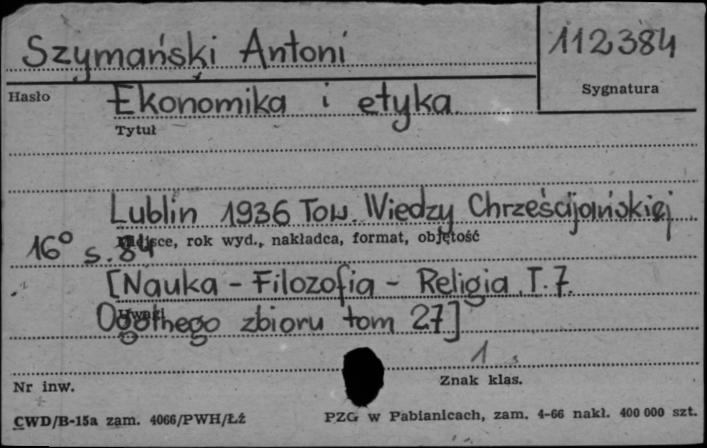 Szymański Antoni
112384
Hasło
Sygnatura
Ekonomika i etyka
Tytuł
Lublin 1936 Tow. Wiedzy Chrześcijańskiej
16° s. 84
Miejsce, rok wyd., nakładca, format, objętość
[Nauka - Filozofia - Religia T. 7.
Ogólnego zbioru tom 27]
Uwagi
1
Nr inw.
Znak klas.
CWD/B-15a zam. 4066/PWH/Łź
PZG w Pabianicach, zam. 4-66 nakł. 400 000 szt.